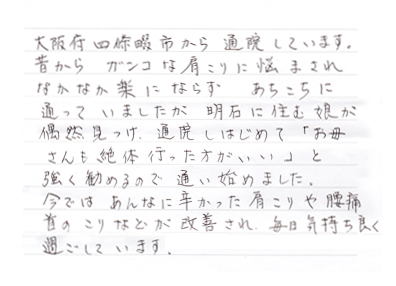 大阪府四條畷市から通院しています。
昔から ガンコな肩こりに悩まされ
なかなか楽にならず あちこちに
通っていましたが 明石に住む娘が
偶然見つけ、通院しはじめて「お母
さんも絶体行った方がいい」と
強く勧めるので通い始めました。
今では あんなに辛かった肩こりや腰痛
首のこりなどが改善され、毎日気持ち良く
過ごしています。